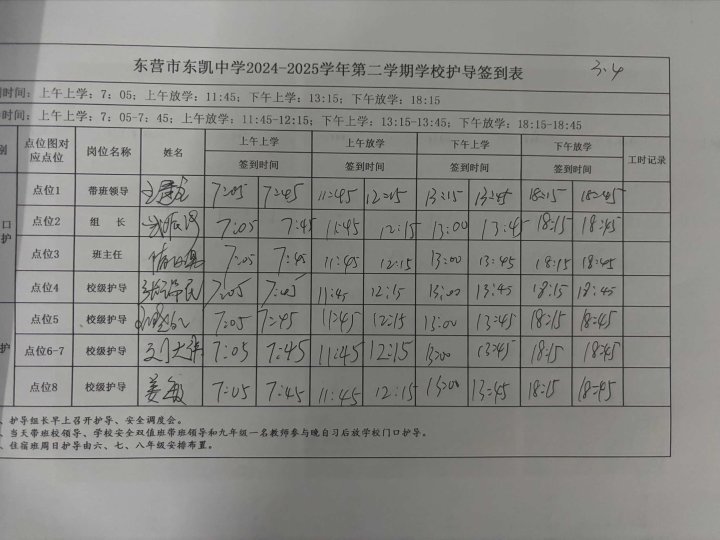 东营市东凯中学2024-2025学年第二学期学校护导签到表 3.4
时间：上午上学：7：05；上午放学：11:45；下午上学：13:15；下午放学：18:15
时间：上午上学：7：05-7：45；上午放学：11:45-12:15；下午上学：13:15-13:45；下午放学：18:15-18:45
别 点位图对应点位 岗位名称 姓名 上午上学 上午放学 下午上学 下午放学 工时记录
签到时间 签到时间 签到时间 签到时间
点位1 带班领导 7:05 7:45 11:45 12:15 13:15 13:45 18:15 18:45
口 点位2 组 长 7:05 7:45 11:45 12:15 13:00 13:45 18:15 18:45
护 点位3 班主任 7:05 7:45 11:45 12:15 13:00 13:45 18:15 18:45
点位4 校级护导 7:05 11:45 12:15 13:00 13:45 18:15 18:45
点位5 校级护导 7:05 7:45 11:45 12:15 13:00 13:45 18:15 18:45
护 点位6-7 校级护导 7:05 7:45 11:45 12:15 13:00 13:45 18:15 18:45
点位8 校级护导 姜敏 7:05 7:45 11:45 12:15 13:00 13:45 18:15 18:45
、护导组长早上召开护导、安全调度会。
、当天带班校领导、学校安全双值班带班领导和九年级一名教师参与晚自习后放学校门口护导。
、住宿班周日护导由六、七、八年级安排布置。